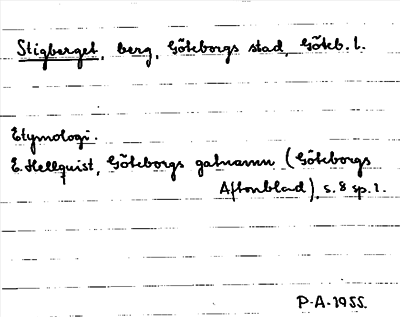 Stigberget, berg, Göteborgs stad, Göteb. l.
Etymologi.
E. Hellquist, Göteborgs gatnamn (Göteborgs
Aftonblad), s. 8 sp. 1.
P.A. 1955.